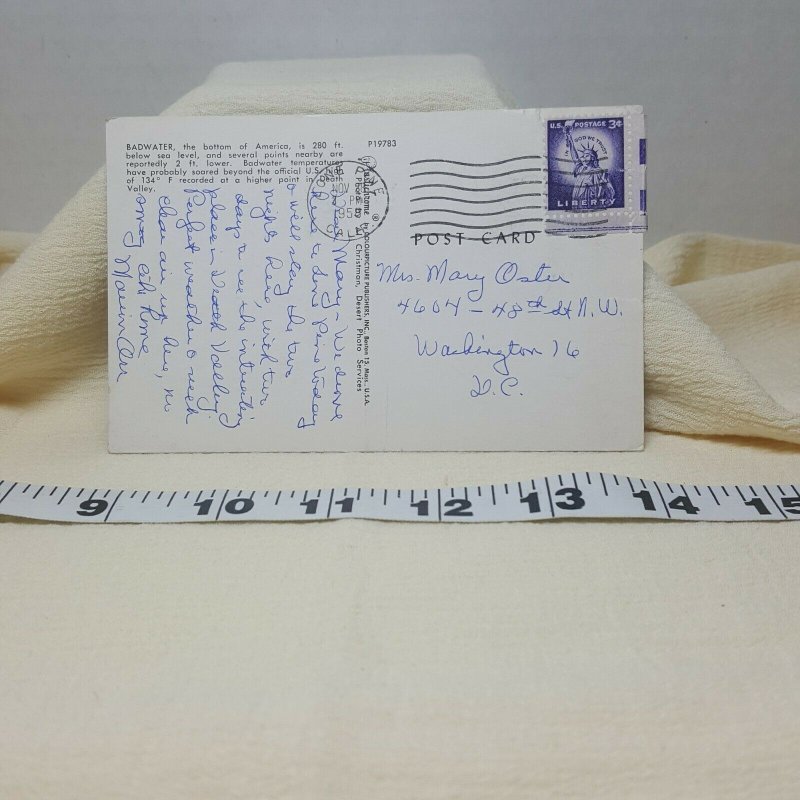 BADWATER, the bottom of America, is 280 ft.
below sea level, and several points nearby are
reportedly 2 ft. lower. Badwater temperatures
have probably soared beyond the official U.S. high
of 134° F recorded at a higher point in Death
Valley.
P19783
Mary - We drove
here to
& will stay the two
nights here, with two
days to see the interesting
places in Death Valley.
Perfect weather & such
clear air up here, no
smog like home
by COLOURPICTURE PUBLISHERS, INC. Boston 15, Mass., U.S.A.
Photo by Christman, Desert Photo Services
NOV
PM
U.S. POSTAGE 3¢
IN GOD WE TRUST
LIBERTY
POST CARD
Mrs. Mary Oster
4604 - 48th St N.W.
Washington 16
D.C.
9 10 11 12 13 14 15